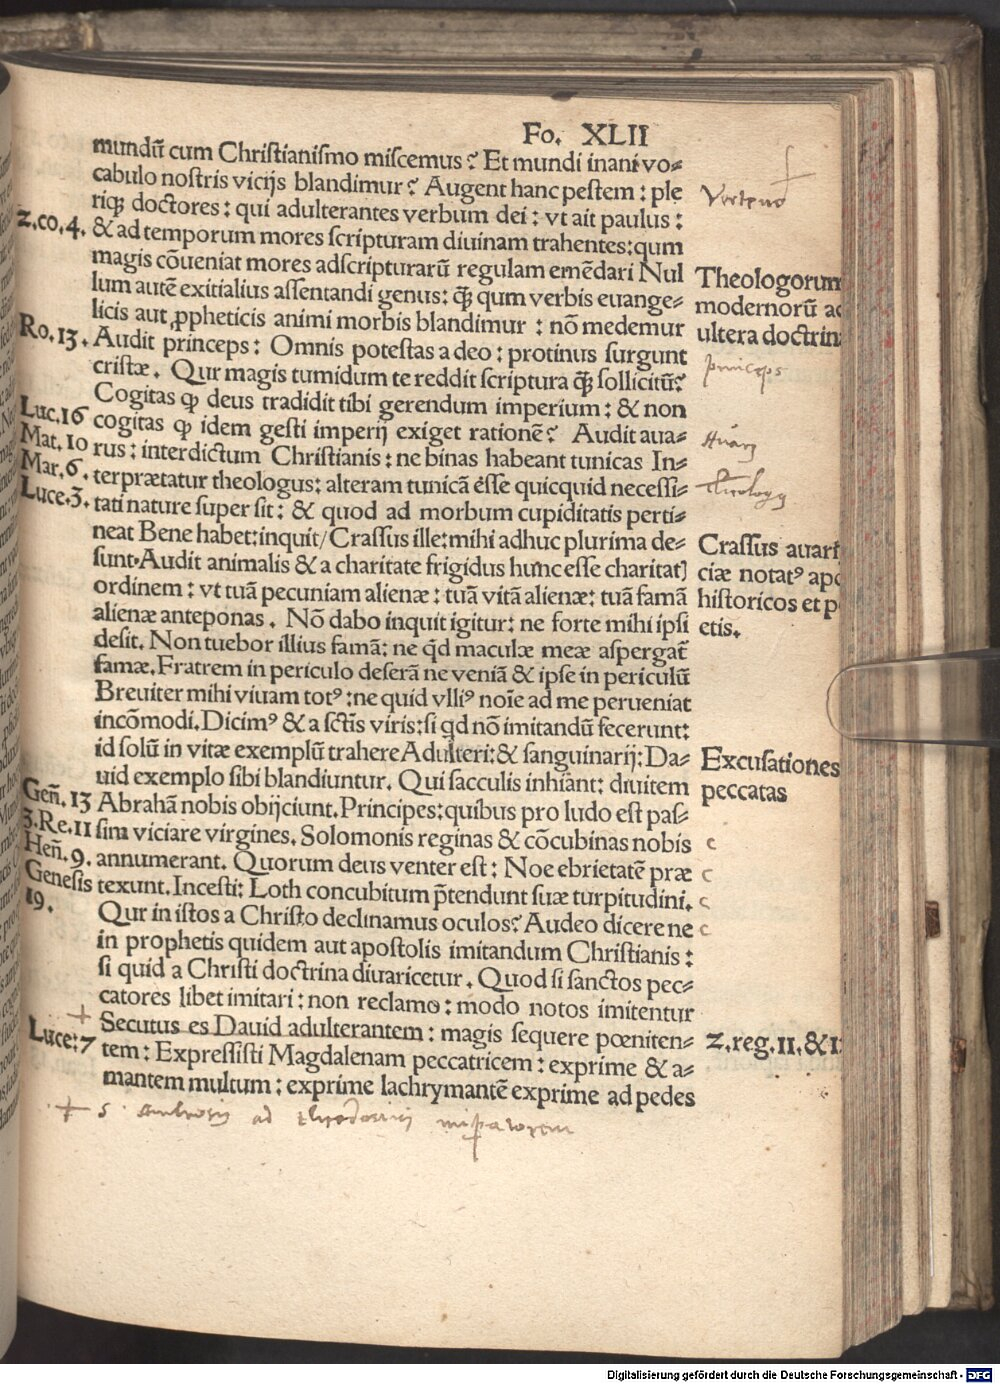 Fo. XLII
mundū cum Christianismo miscemus? Et mundi inani vo=
cabulo nostris vicijs blandimur? Augent hanc pestem: ple
riqȝ doctores: qui adulterantes verbum dei: vt ait paulus:
2.co.4. & ad temporum mores scripturam diuinam trahentes: qum
magis cōueniat mores ad scripturarū regulam emēdari Nul
lum autē exitialius assentandi genus: q̄ȝ qum verbis euange=
licis aut ꝓpheticis animi morbis blandimur : nō medemur
Ro.13. Audit princeps: Omnis potestas a deo: protinus surgunt
cristæ. Qur magis tumidum te reddit scriptura q̄ȝ sollicitū?
Cogitas ꝙ deus tradidit tibi gerendum imperium: & non
Luc.16 cogitas ꝙ idem gesti imperij exiget rationē? Audit aua=
Mat. 10 rus: interdictum Christianis: ne binas habeant tunicas In=
Mar.6. terprætatur theologus: alteram tunicā esse quicquid necessi=
Luce.3. tati nature super sit: & quod ad morbum cupiditatis perti=
neat Bene habet: inquit/ Crassus ille: mihi adhuc plurima de=
sunt. Audit animalis & a charitate frigidus hunc esse charitatꝭ
ordinem: vt tuā pecuniam alienæ: tuā vitā alienæ: tuā famā
alienæ anteponas. Nō dabo inquit igitur: ne forte mihi ipsi
desit. Non tuebor illius famā: ne qd maculæ meæ aspergat̄
famæ. Fratrem in periculo deserā ne veniā & ipse in periculū
Breuiter mihi viuam totꝰ: ne quid vlliꝰ noīe ad me perueniat
incōmodi. Dicimꝰ & a sctīs viris: si qd nō imitandū fecerunt:
id solū in vitæ exemplū trahere Adulteri: & sanguinarij: Da=
uid exemplo sibi blandiuntur. Qui sacculis inhiant: diuitem
Geñ. 13 Abrahā nobis obijciunt. Principes: quibus pro ludo est pas=
3.Re.11 sim viciare virgines. Solomonis reginas & cōcubinas nobis
Heñ. 9. annumerant. Quorum deus venter est: Noe ebrietatē præ
Genesis texunt. Incesti: Loth concubitum p̄tendunt suæ turpitudini.
19. Qur in istos a Christo declinamus oculos? Audeo dicere ne
in prophetis quidem aut apostolis imitandum Christianis:
si quid a Christi doctrina diuaricetur. Quod si sanctos pec=
catores libet imitari: non reclamo: modo notos imitentur
Secutus es Dauid adulterantem: magis sequere pœniten=
Luce: 7 tem: Expressisti Magdalenam peccatricem: exprime & a=
mantem multum: exprime lachrymantē exprime ad pedes
+ S. Ambrosij ad theodosium imperatorem
Theologorum
modernorū
ultera doctrin
princeps
Auarꝭ
theologꝭ
Crassus auari
ciæ notatꝰ
historicos et
etis.
Excusationes
peccatas
c
c
c
c
2.reg.11.&
Digitalisierung gefördert durch die Deutsche Forschungsgemeinschaft - DFG